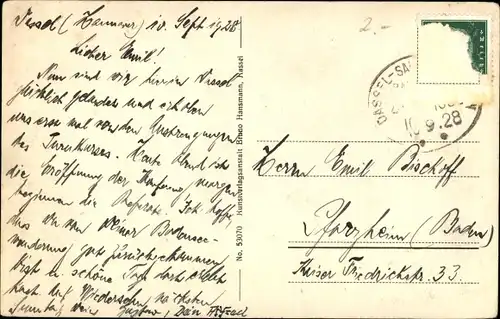 Kassel (Hannover) 10. Sept 1928.
Lieber Emil!
Nun sind wir hier in Kassel
glücklich gelandet und erholen
uns erst mal von den Anstrengungen
des Heute Abend ist
die Eröffnung der morgen
beginnen die Referate. Ich hoffe,
das Du von Deiner Bodensee-
wanderung gut zurückgekommen
bist u. schöne Tage dort erlebt
hast. Auf Wiedersehen nächsten
Sonntag Dein Alfred
No. 53070 Kunstverlagsanstalt Bruno Hansmann, Kassel
2.-
10.9.28
Herrn Emil Bischoff
Pforzheim (Baden)
Kaiser Friedrichstr. 33.